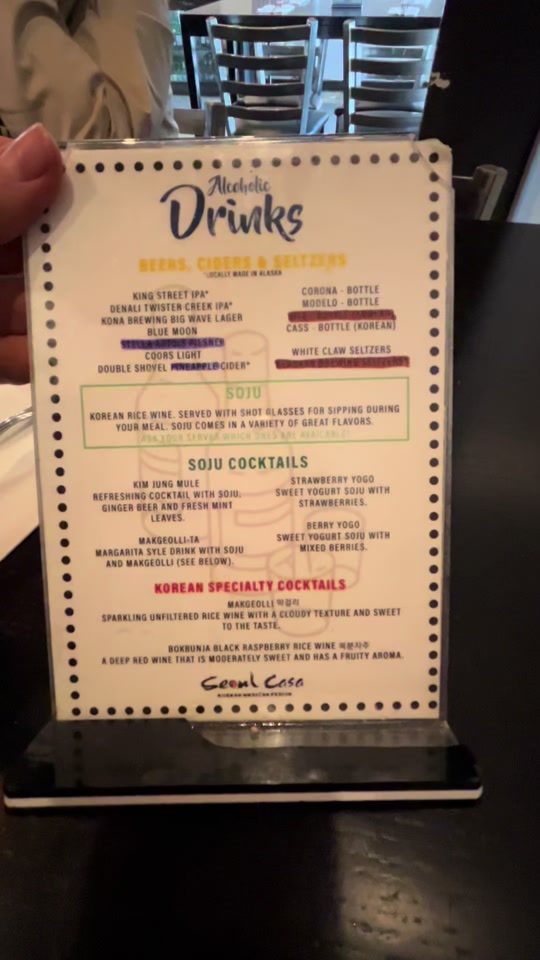 Alcoholic
Drinks
BEERS, CIDERS & SELTZERS
*LOCALLY MADE IN ALASKA
KING STREET IPA*
DENALI TWISTER CREEK IPA*
KONA BREWING BIG WAVE LAGER
BLUE MOON
STELLA ARTOIS PILSNER
COORS LIGHT
DOUBLE SHOVEL PINEAPPLE CIDER*
CORONA - BOTTLE
MODELO - BOTTLE
CASS - BOTTLE (KOREAN)
WHITE CLAW SELTZERS
SOJU
KOREAN RICE WINE. SERVED WITH SHOT GLASSES FOR SIPPING DURING
YOUR MEAL. SOJU COMES IN A VARIETY OF GREAT FLAVORS.
ASK YOUR SERVER WHICH ONES ARE AVAILABLE!
SOJU COCKTAILS
KIM JUNG MULE
REFRESHING COCKTAIL WITH SOJU,
GINGER BEER AND FRESH MINT
LEAVES.
MAKGEOLLI-TA
MARGARITA SYLE DRINK WITH SOJU
AND MAKGEOLLI (SEE BELOW).
STRAWBERRY YOGO
SWEET YOGURT SOJU WITH
STRAWBERRIES.
BERRY YOGO
SWEET YOGURT SOJU WITH
MIXED BERRIES.
KOREAN SPECIALTY COCKTAILS
MAKGEOLLI 막걸리
SPARKLING UNFILTERED RICE WINE WITH A CLOUDY TEXTURE AND SWEET
TO THE TASTE.
BOKBUNJA BLACK RASPBERRY RICE WINE 복분자주
A DEEP RED WINE THAT IS MODERATELY SWEET AND HAS A FRUITY AROMA.
Seoul Casa
KOREAN MEXICAN FUSION